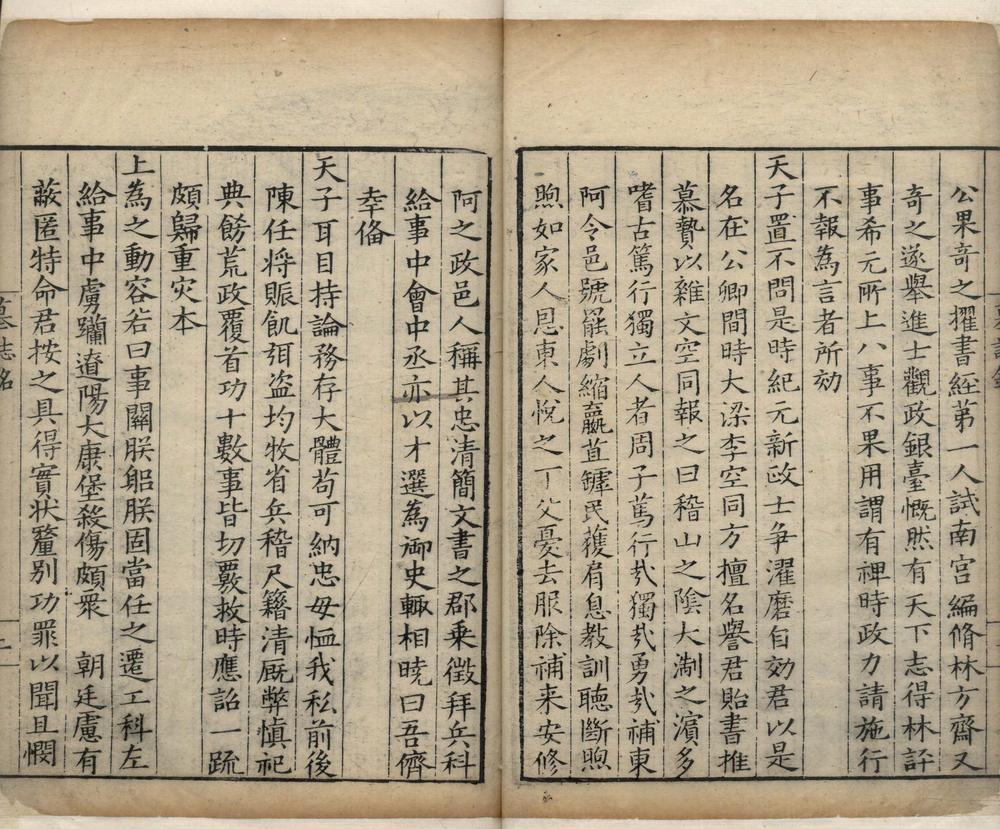 公果奇之擢書經第一人試南宮編脩林方齋又
奇之遂舉進士觀政銀臺慨然有天下志得林評
事希元所上八事不果用謂有禆時政力請施行
不報為言者所劾
天子置不問是時紀元新政士争濯磨自効君以是
名在公卿間時大梁李空同方擅名譽君貽書推
慕贄以雜文空同報之曰稽山之隂大淛之濵多
嗜古篤行獨立人者周子篤行㢤獨㢤勇㢤補東
阿令邑號罷劇縮羸苴罅民獲肩息教訓聽斷煦
煦如家人恩東人悅之丁父憂去服除補来安修
阿之政邑人稱其忠清簡文書之郡乗徴拜兵科
給事中會中丞亦以才選為御史輙相曉曰吾儕
幸俻
天子耳目持論務存大體苟可納忠毋恤我私前後
陳任将賑飢弭盗均牧省兵稽尺籍清厩弊慎祀
典餝荒政覆首功十數事皆切覈救時應詔一䟽
頗歸重灾本
上為之動容若曰事關朕躬朕固當任之遷工科左
給事中虜躪遼陽大康堡殺傷頗衆　朝廷慮有
蔽匿特命君按之具得實状釐别功罪以聞且憫
墓志銘